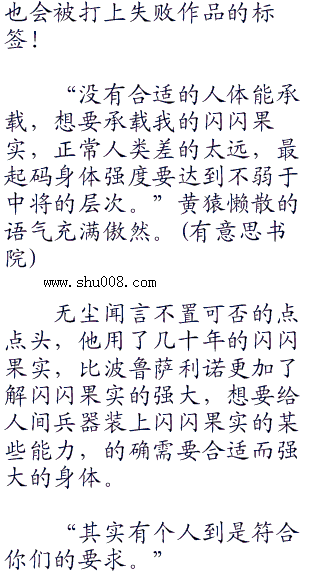 也会被打上失败作品的标
签！
“没有合适的人体能承
载，想要承载我的闪闪果
实，正常人类差的太远，最
起码身体强度要达到不弱于
中将的层次。”黄猿懒散的
语气充满傲然。(有意思书
院)
www.shu008.com
无尘闻言不置可否的点
点头，他用了几十年的闪闪
果实，比波鲁萨利诺更加了
解闪闪果实的强大，想要给
人间兵器装上闪闪果实的某
些能力，的确需要合适而强
大的身体。
“其实有个人到是符合
你们的要求。”